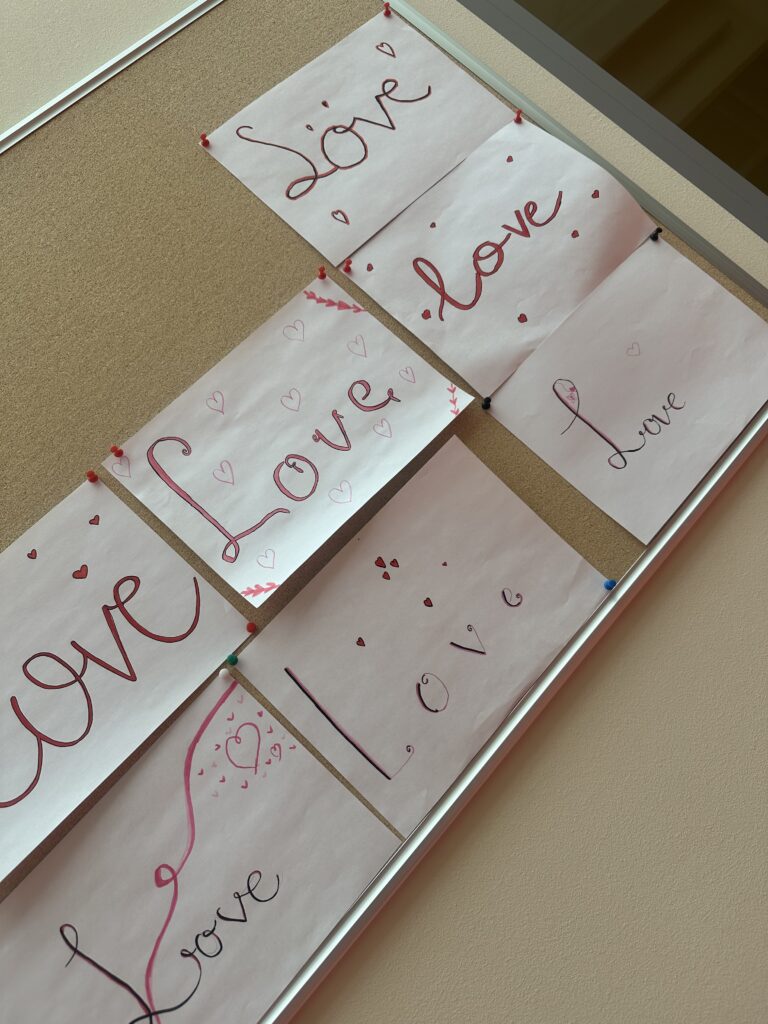 Love
love
Love
Love
ove
Love
Love